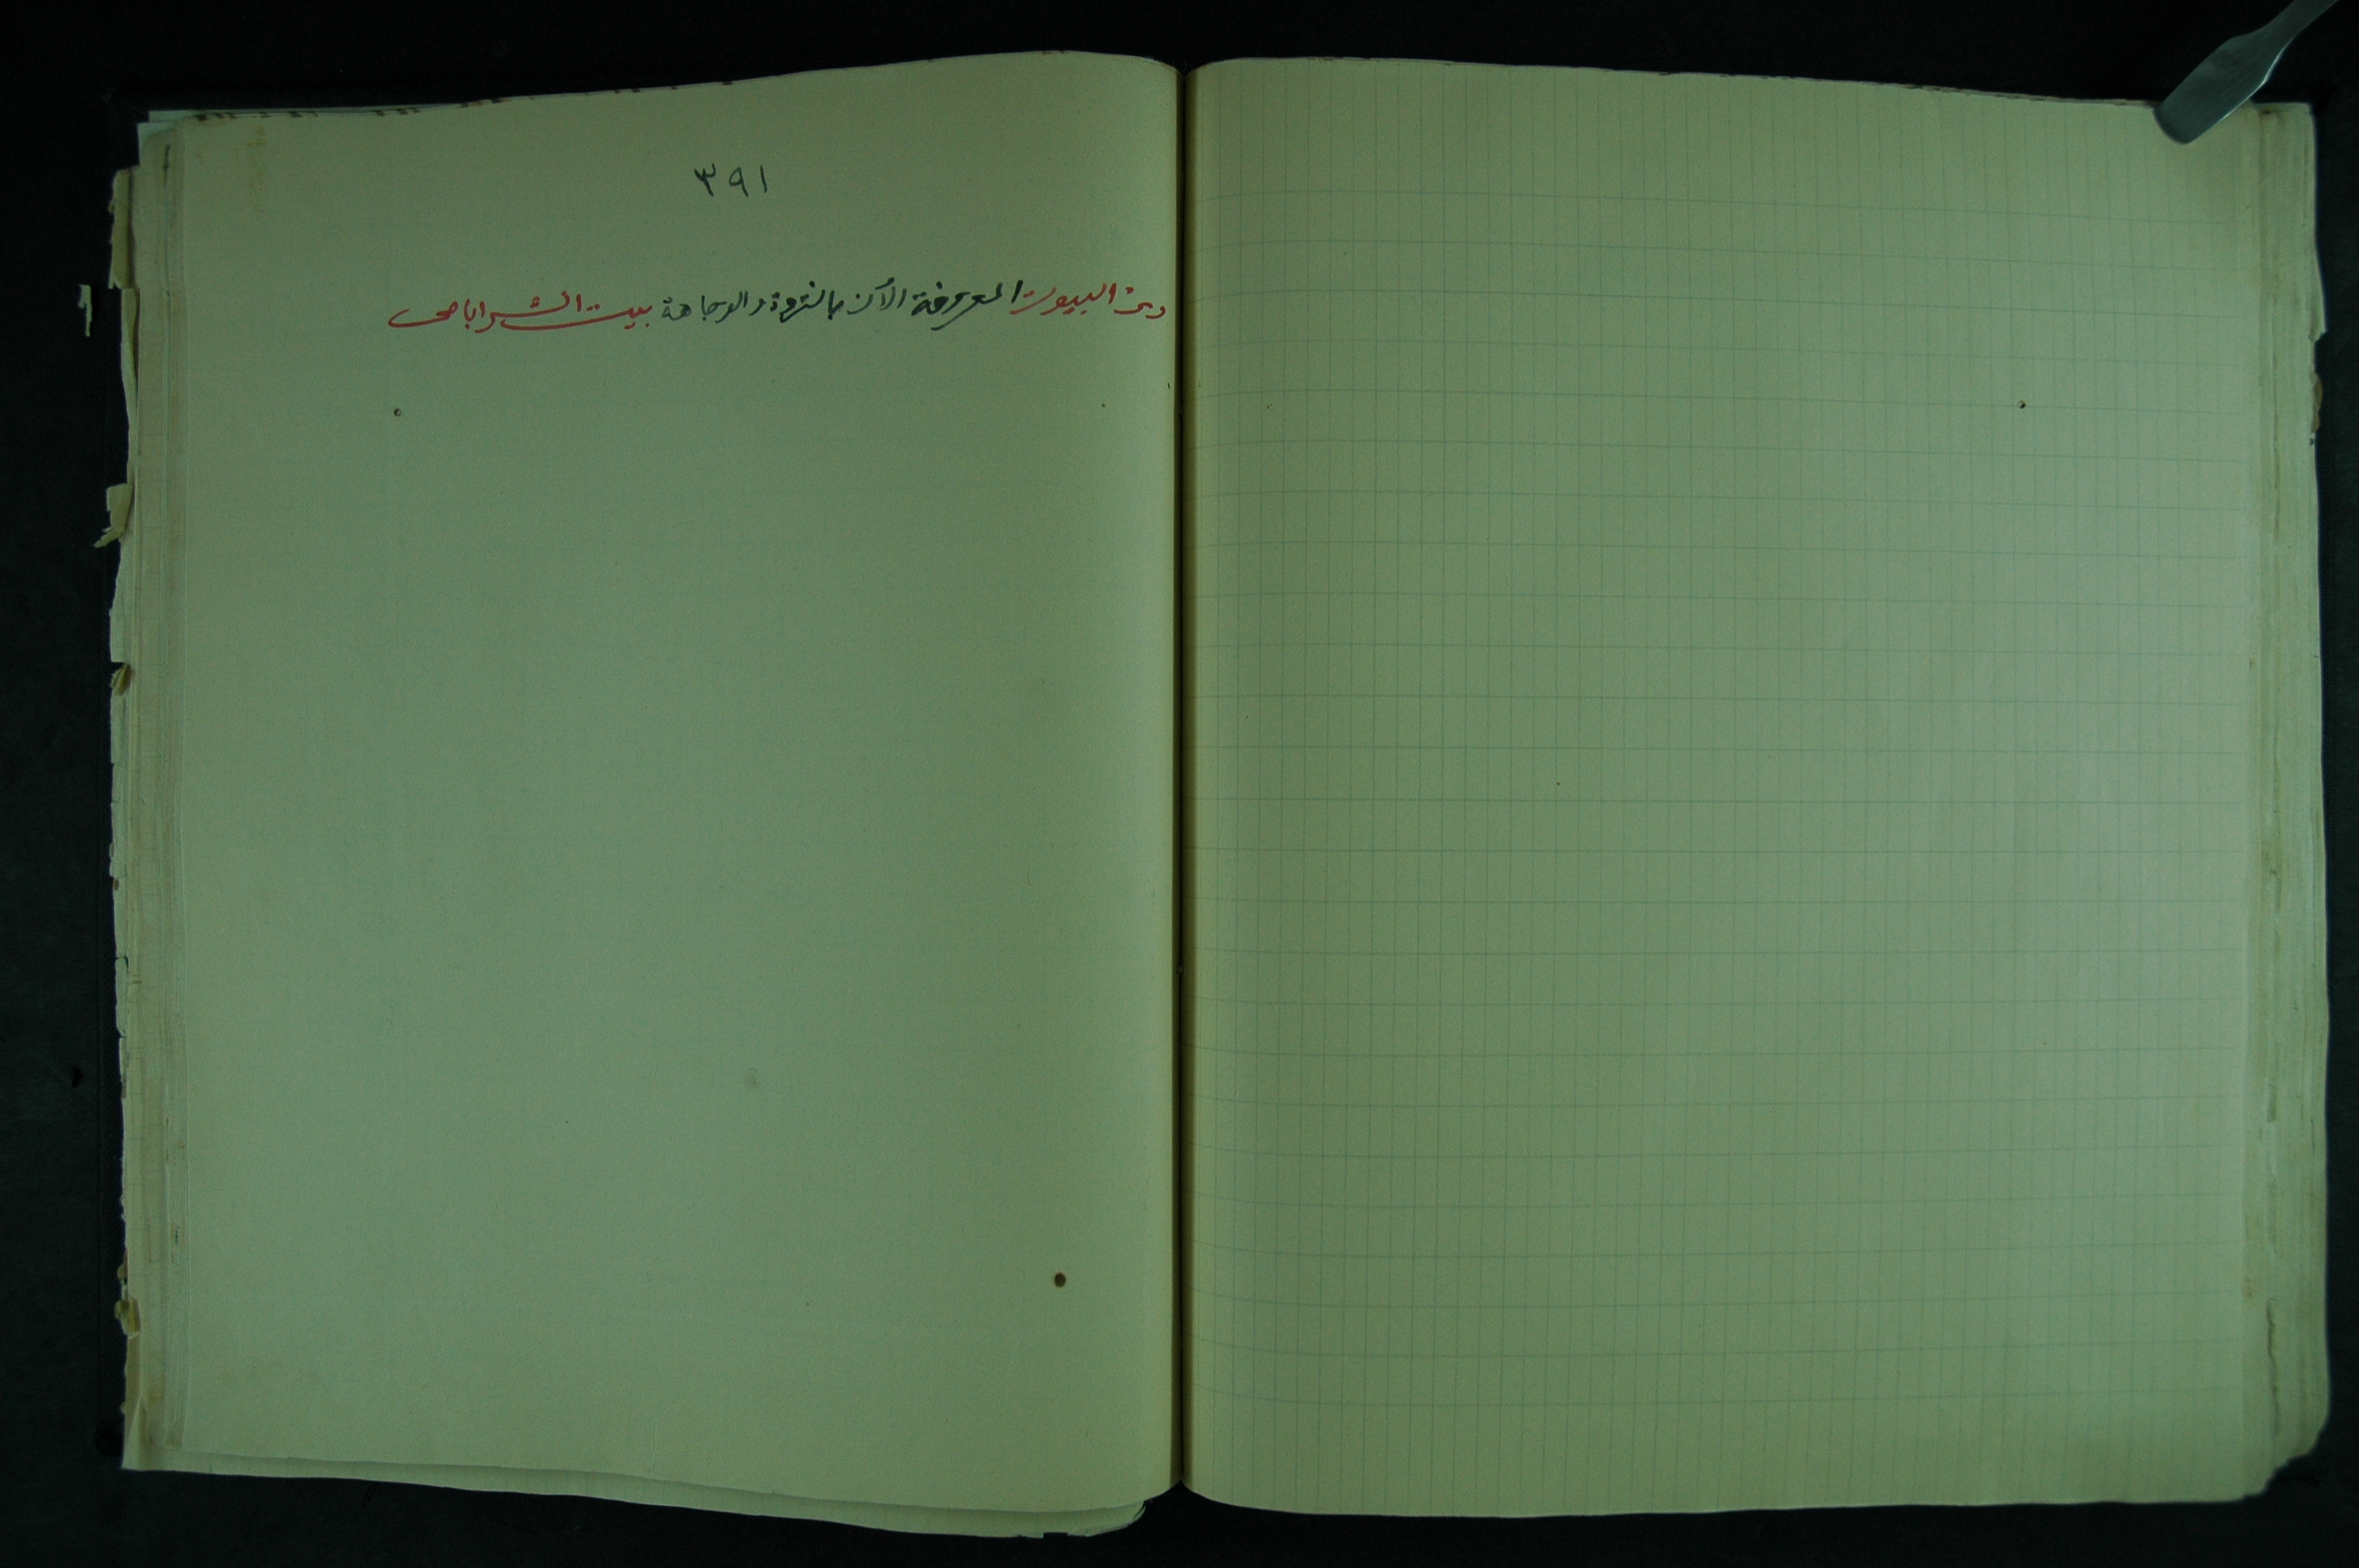 ٣٩١
ومن البيوت المعروفة الآن بالثروة والوجاهة بيت الشراباصى